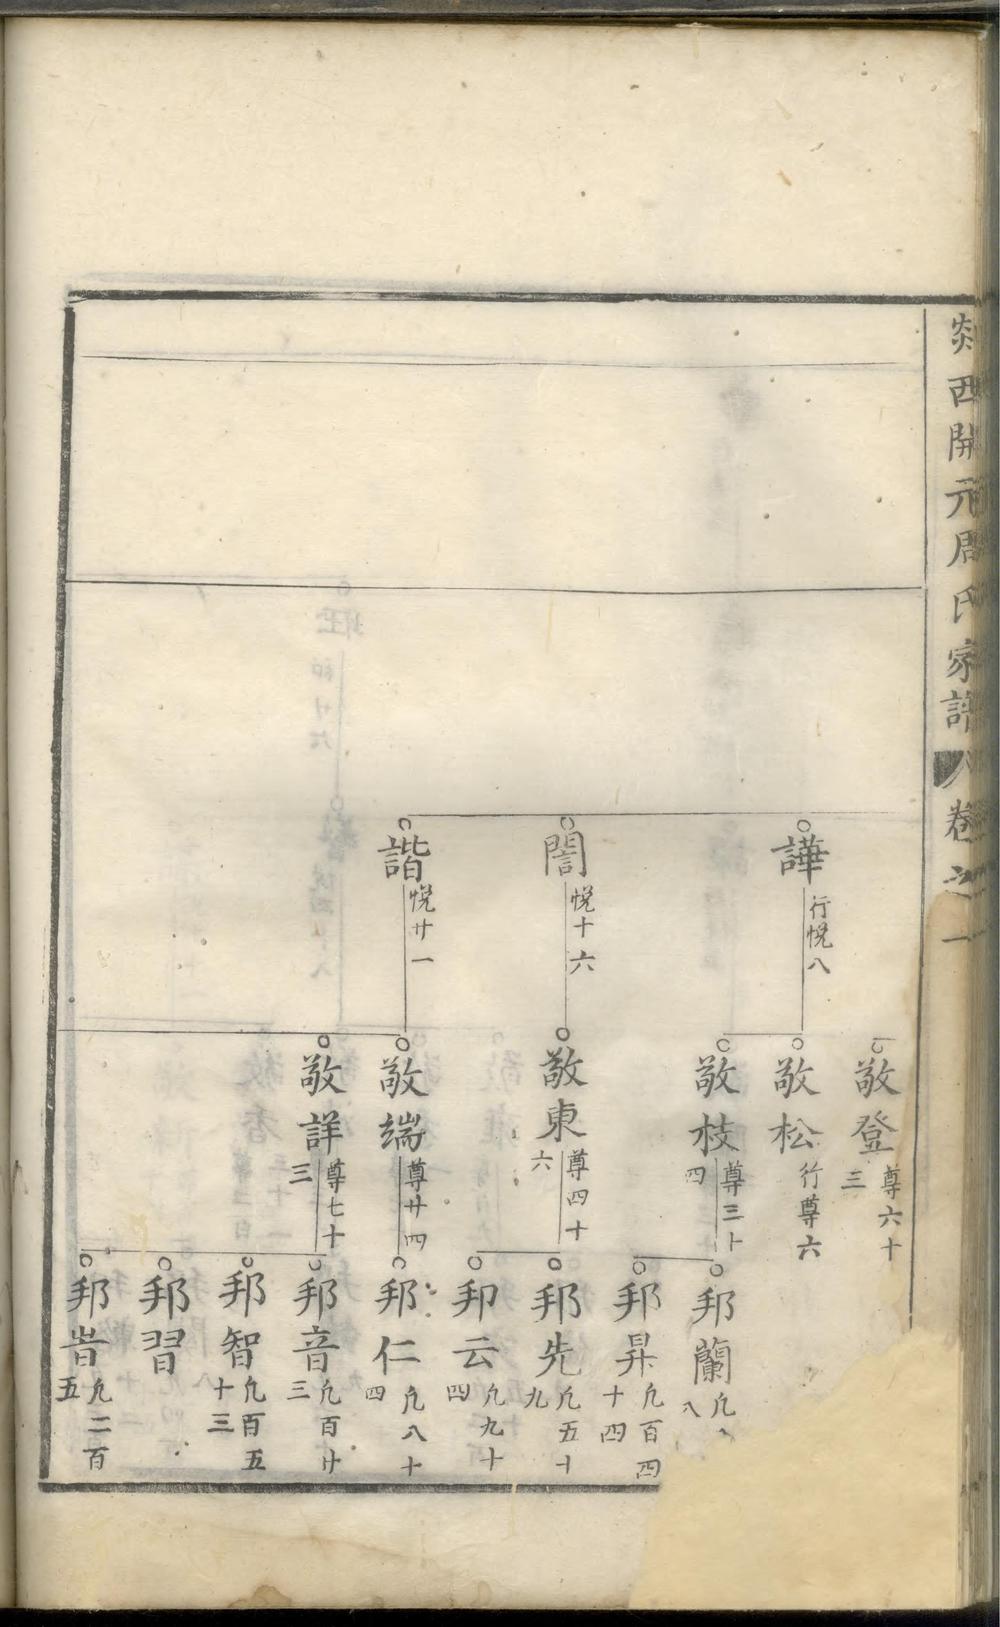 剡西開元周氏家譜 卷之一
譁 行悅八
誾 悅十六
諧 悅廿一
敬登 尊六十三
敬松 行尊六
敬枝 尊三十四
敬東 尊四十六
敬端 尊廿四
敬詳 尊七十三
邦蘭 凢 八
邦昇 凢百四十四
邦先 凢五十九
邦云 凢九十四
邦仁 凢八十四
邦音 凢百廿三
邦智 凢百五十三
邦習
邦旹 凢二百五